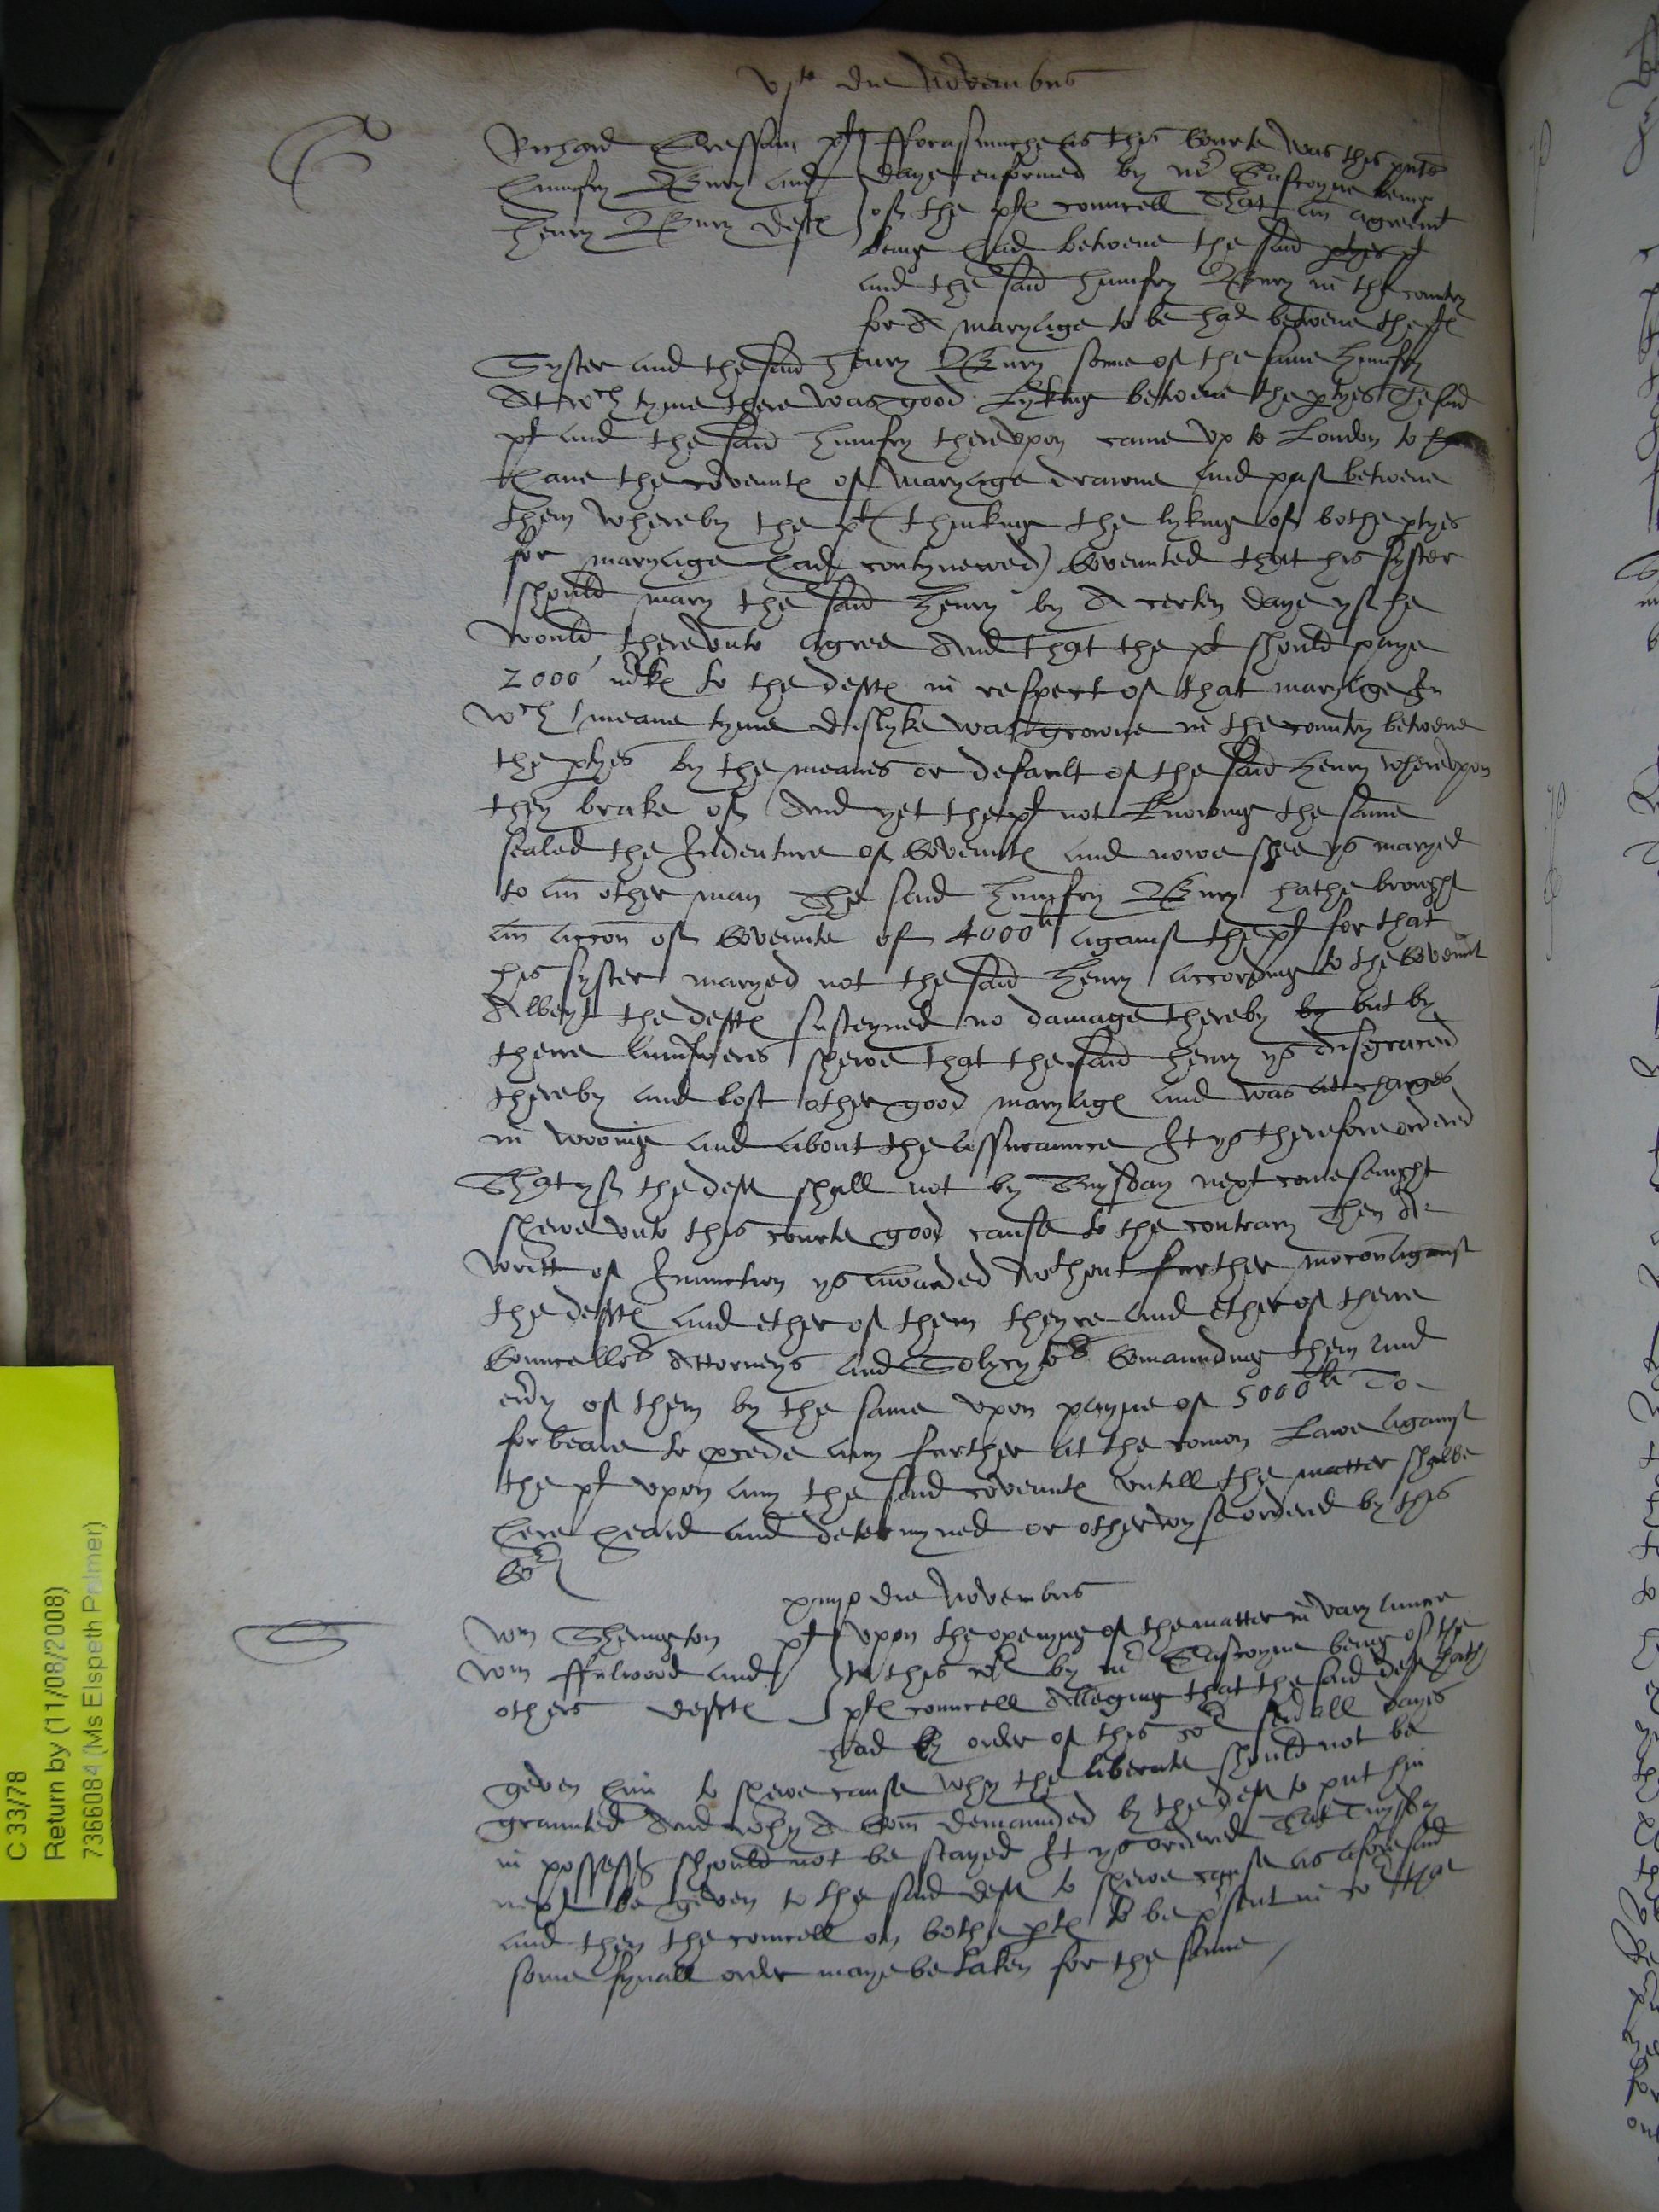 vjto die Novembris
Richard Gressam pt fforasmuche as this Courte was this pnte
Humfry Bury and daye enformed by mr Gascoyne beinge
Henry Bury deftes of the ptes councell That an agreemt
beinge had betwene the said ptyes pt
and the said Humfry Bury in the country
for A maryage to be had betwene the ptes
Syster and the said Henry Bury sonne of the same Humfry
At wch tyme there was good Lykinge betwene the ptyes The said
pt and the said Humfry therevpon came vp to London to
have the covenntes of Maryage drawne and past betwene
them whereby the pt (thinkinge the lykinge of bothe ptyes
for maryage had contynewed) Covennted that his syster
should mary the said Henry by A certen daye yf he
would therevnto agree And that the pt should paye
2000 mrkes to the deftes in respect of that maryage In
wch meane tyme dislyke was growne in the country betwene
the ptyes by the meanes or default of the said Henry wherevpon
they brake of And yet the pt not knowing the same
sealed the Indenture of Covenntes and nowe shee ys maryed
to an other man The said Humfry Bury hathe brought
an accon of Covennte of 4000li against the pt for that
his syster maryed not the said Henry according to the Covennt
Albeyt the deftes susteyned no damage thereby by but by
theire aunsweres shewe that the said Henry ys disgraced
thereby and lost other good maryages and was at charges
in wooing and about the assuraunce It ys therefore ordered
That yf the deft shall not by Tuysday next come senight
shewe vnto this courte good cause to the contrary Then A
writt of Iniunction ys awarded wthout further mocon against
the deftes and ether of them theyre and ether of theire
Councellors Attorneys and Solycytors Comaunding them and
evry of them by the same vpon payne of 5000li To
forbeare to pcede any further at the comon Lawe against
the pt vpon any the said covenntes vntill the matter shalbe
here heard and determyned or otherwyse ordered by this
Cort
die Novembris
Wm pt vpon the openyng of the matter in varyaunce
Wm ffulwood and in this cort by mr Gascoyne being of the
others deftes ptes councell Alleging that the said deft hath
had by order of this cort sevrall dayes
geven him to shewe cause why the liberate should not be
graunted And why A Com demaunded by the deft to put him
in possess should not be stayed It ys ordered That Tuysday
next be geven to the said deft to shewe cause as aforesaid
and then the councell on bothe ptes to be psent in cort that
some fynall order maye be taken for the same
C 33/78
Return by (11/08/2008)
7366084 (Ms Elspeth Palmer)